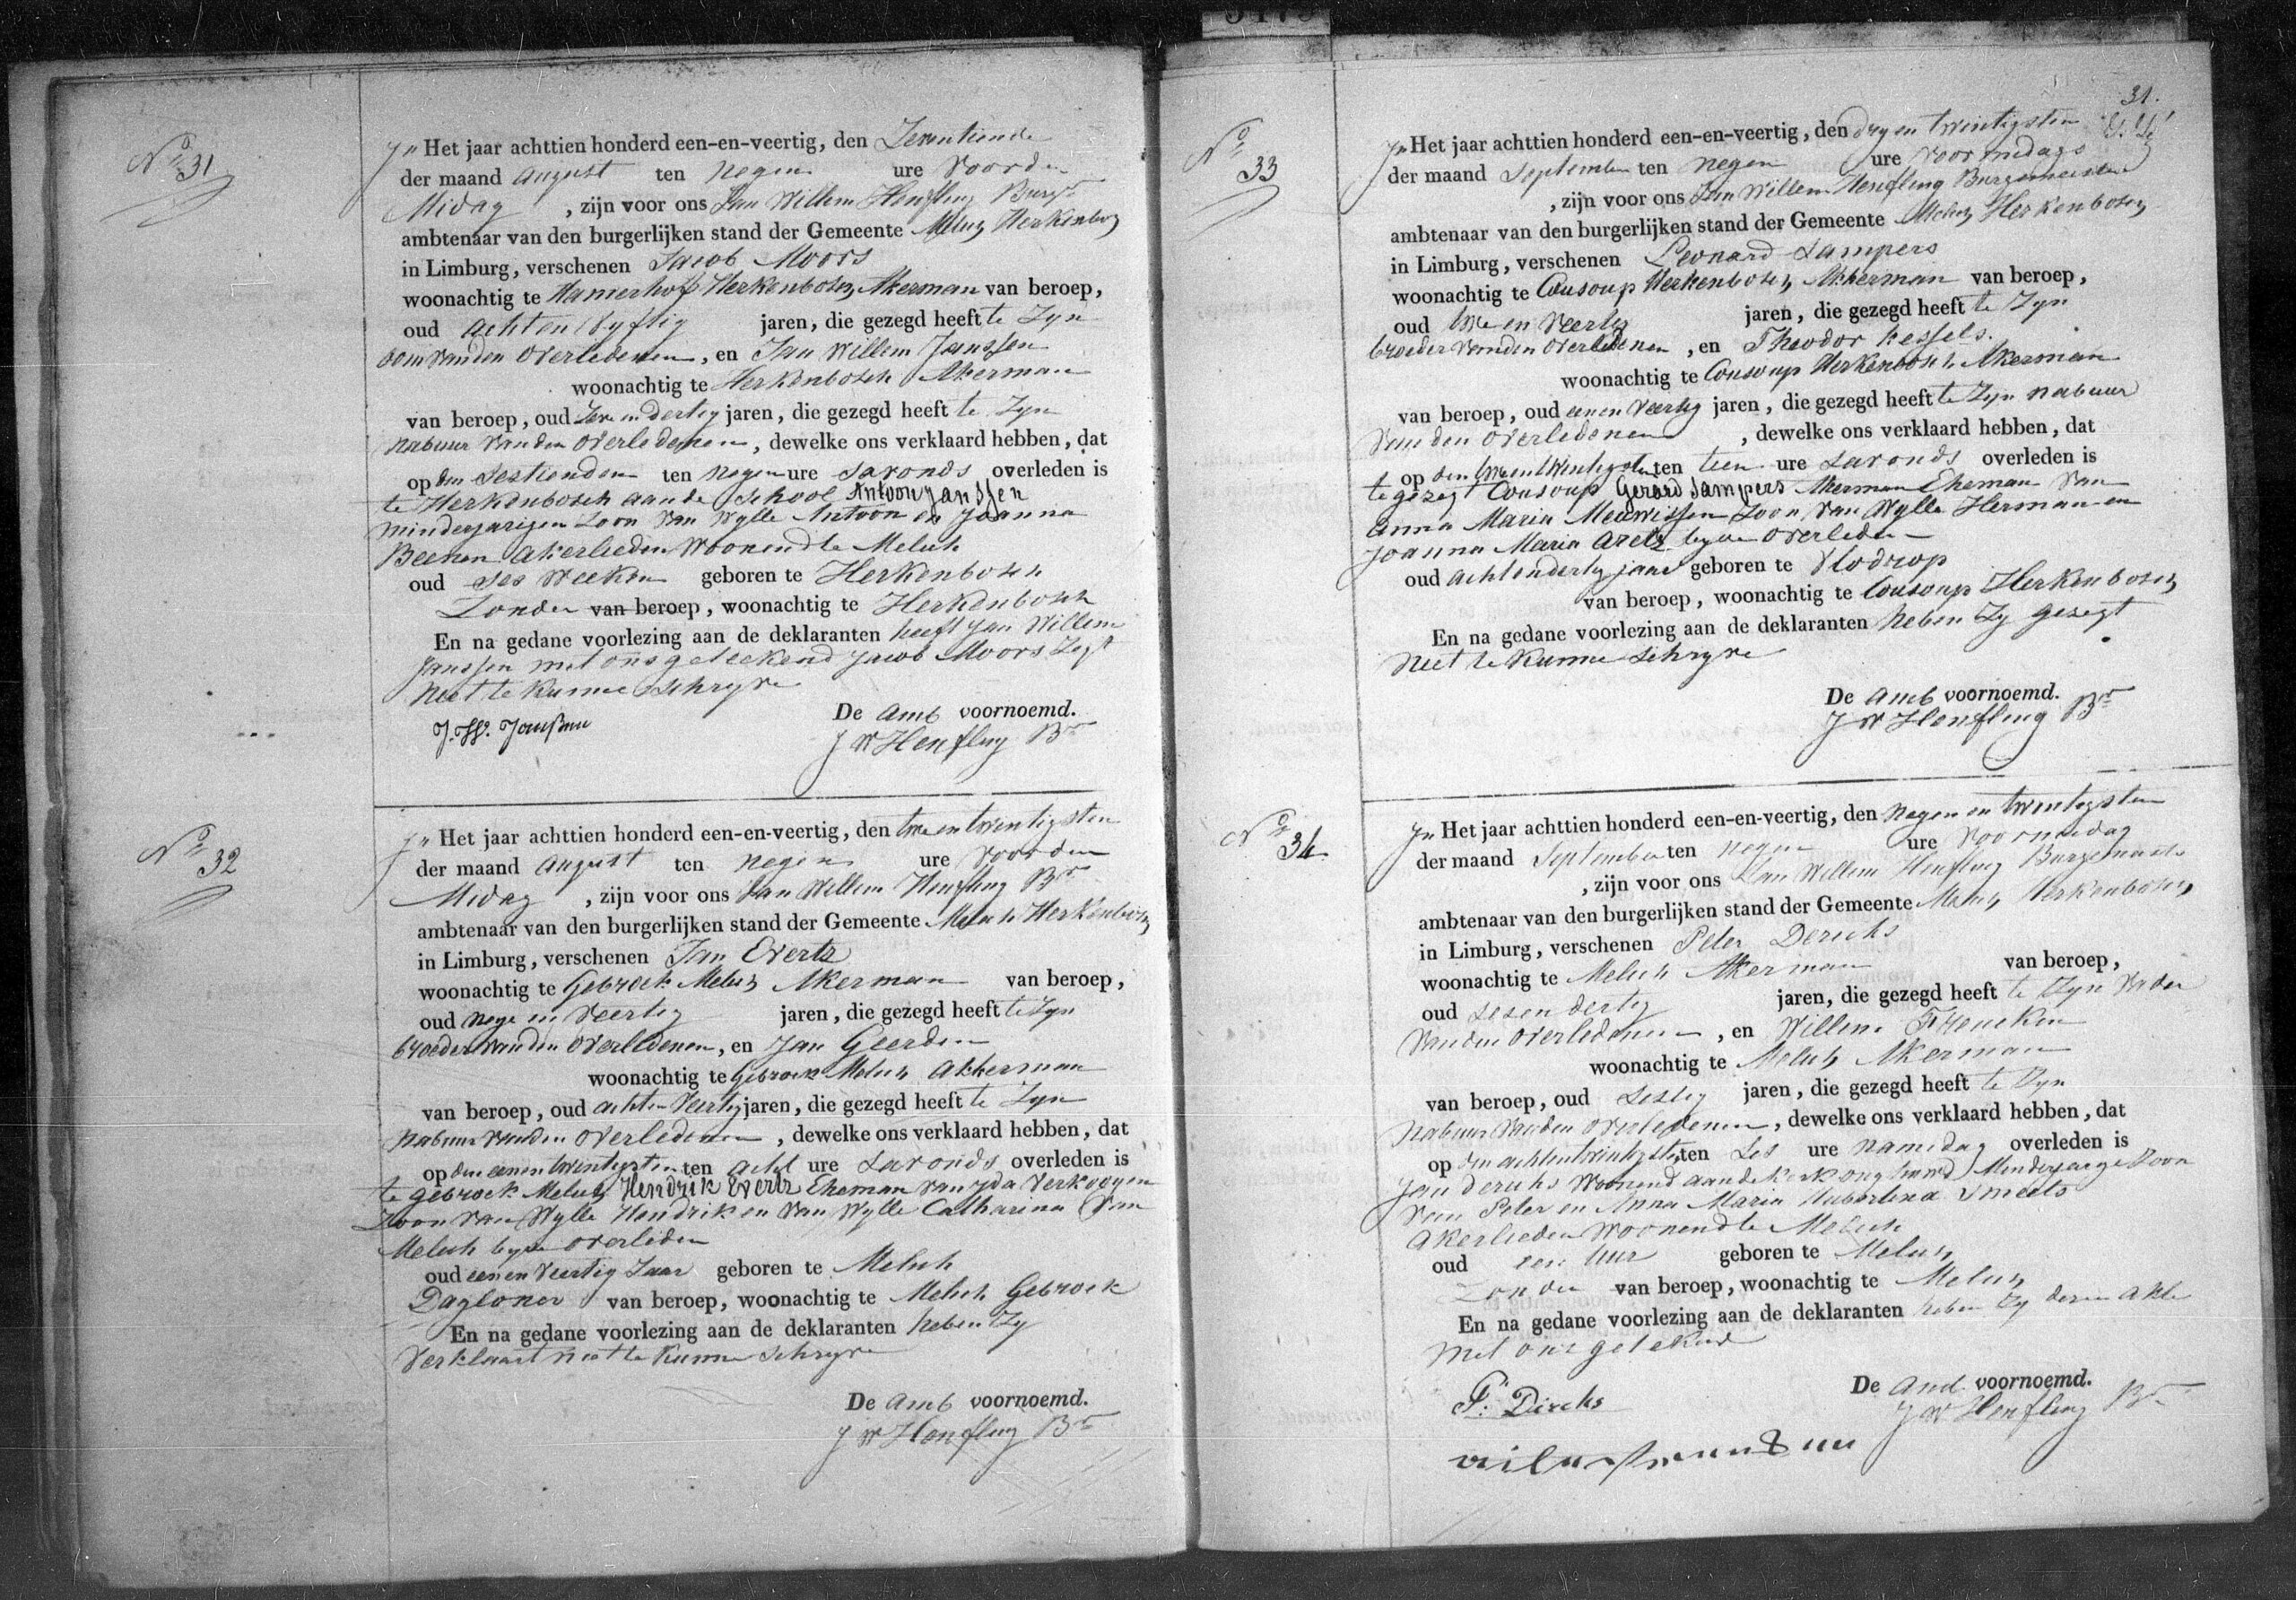 No 31
Jn Het jaar achttien honderd een-en-veertig, den Zeventiende
der maand august ten negen ure voorden
Midag , zijn voor ons Jan Willem Henfling Burgr
ambtenaar van den burgerlijken stand der Gemeente Melich Herkenbosch
in Limburg, verschenen Jacob Moors
woonachtig te Hamerhof Herkenbosch Akerman van beroep,
oud achten vyftig jaren, die gezegd heeft te Zyn
oom vanden overledenen, en Jan Willem Janssen
woonachtig te Herkenbosch Akerman
van beroep, oud Zeve en dertig jaren, die gezegd heeft te Zyn
nabuur vanden overledenen, dewelke ons verklaard hebben, dat
op den Sestienden ten negen ure Savonds overleden is
te Herkenbosch aande School Antoon Janssen
minderjarigen Zoon van Wylle Antoon en Joanna
Beenen akerlieden Woonend te Melich
oud Ses Weeken geboren te Herkenbosch
Zonder van beroep, woonachtig te Herkenbosch
En na gedane voorlezing aan de deklaranten heeft Jan Willem
Janssen met ons geteekend Jacob Moors Zegt
niet te Kunne Schryve
De Amb voornoemd.
J. W. Janßen
J W Henfling Br
No 32
Jn Het jaar achttien honderd een-en-veertig, den twe en twentigsten
der maand august ten negen ure voorden
Midag , zijn voor ons Jan Willem Henfling Br
ambtenaar van den burgerlijken stand der Gemeente Melich Herkenbosch
in Limburg, verschenen Jan Evertz
woonachtig te Gebroek Melich Akerman van beroep,
oud nege en Veertig jaren, die gezegd heeft te Zyn
broeder vanden overledenen, en Jan Geerden
woonachtig te Gebroek Melich Akkerman
van beroep, oud achten Veertig jaren, die gezegd heeft te Zyn
Nabuur vanden overledenen, dewelke ons verklaard hebben, dat
op den eenen twentigsten ten acht ure Savonds overleden is
te gebroek Melich Hendrik Evertz Eheman van Ida Verkooyen
Zoon van Wylle Hendrik en van Wylle Catharina Van
Melich beyde overleden
oud eenen Veertig Jaar geboren te Melich
Dagloner van beroep, woonachtig te Melich Gebroek
En na gedane voorlezing aan de deklaranten heben Zy
Verklaart niet te Kunne Schryve
De Amb voornoemd.
J W Henfling Br
31.
No 33
Jn Het jaar achttien honderd een-en-veertig, den dry en twintigsten
der maand September ten negen ure voormidags
, zijn voor ons Jan Willem Henfling Burgemeester
ambtenaar van den burgerlijken stand der Gemeente Melich Herkenbosch
in Limburg, verschenen Leonard Lampers
woonachtig te Cousoup Herkenbosch Akkerman van beroep,
oud twe en Veertig jaren, die gezegd heeft te Zyn
broeder vanden overledenen, en Theodor Kessels.
woonachtig te Cousoup Herkenbosch Akerman
van beroep, oud eenen Veertig jaren, die gezegd heeft te Zyn nabuur
Van den overledenen , dewelke ons verklaard hebben, dat
op den twe en twintigsten ten tien ure Savonds overleden is
te gezegt Cousoup Gerard Lampers Akerman Eheman Van
Anna Maria Meuwissen Zoon van Wylle Herman en
Joanna Maria Aretz beyde overleden
oud achtendertig jaar geboren te Vlodrop
van beroep, woonachtig te Cousoup Herkenbosch
En na gedane voorlezing aan de deklaranten heben Zy gezegt
niet te Kunne Schryve
De Amb voornoemd.
J W Henfling Br
No 34
Jn Het jaar achttien honderd een-en-veertig, den negen en twintigsten
der maand September ten negen ure Voormidag
, zijn voor ons Jan Willem Henfling Burgemeester
ambtenaar van den burgerlijken stand der Gemeente Melich Herkenbosch
in Limburg, verschenen Peter Derichs
woonachtig te Melich Akerman van beroep,
oud Sesendertig jaren, die gezegd heeft te Zyn Vader
Vanden overledenen, en Willem Frencken
woonachtig te Melich Akerman
van beroep, oud Sestig jaren, die gezegd heeft te Zyn
Nabuur vanden overledenen, dewelke ons verklaard hebben, dat
op den achtentwintigsten ten Ses ure namidag overleden is
Jan Derichs Woonend aande kerk Minderjarige Zoon
Van Peter en Anna Maria Hubertina Smeets
Akerlieden Woonend te Melich
oud een Uur geboren te Melich
Zonder van beroep, woonachtig te Melich
En na gedane voorlezing aan de deklaranten heben Zy dezen Akte
met ons getekend
De Amb voornoemd.
P. Dirchs
J W Henfling Br